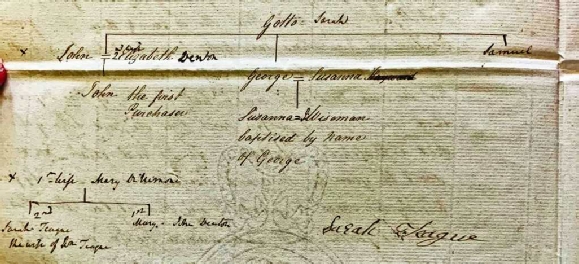 Gotto - Sarah
x John = 2nd wife Elizabeth Denton
Samuel
George = Susanna
John the first
Purchaser
Susanna = J Wiseman
baptised by name
of George
x 1st wife Mary
2nd
1st
Sarah Teague
Mary - John Denton
the wife of Teague
Sarah Teague